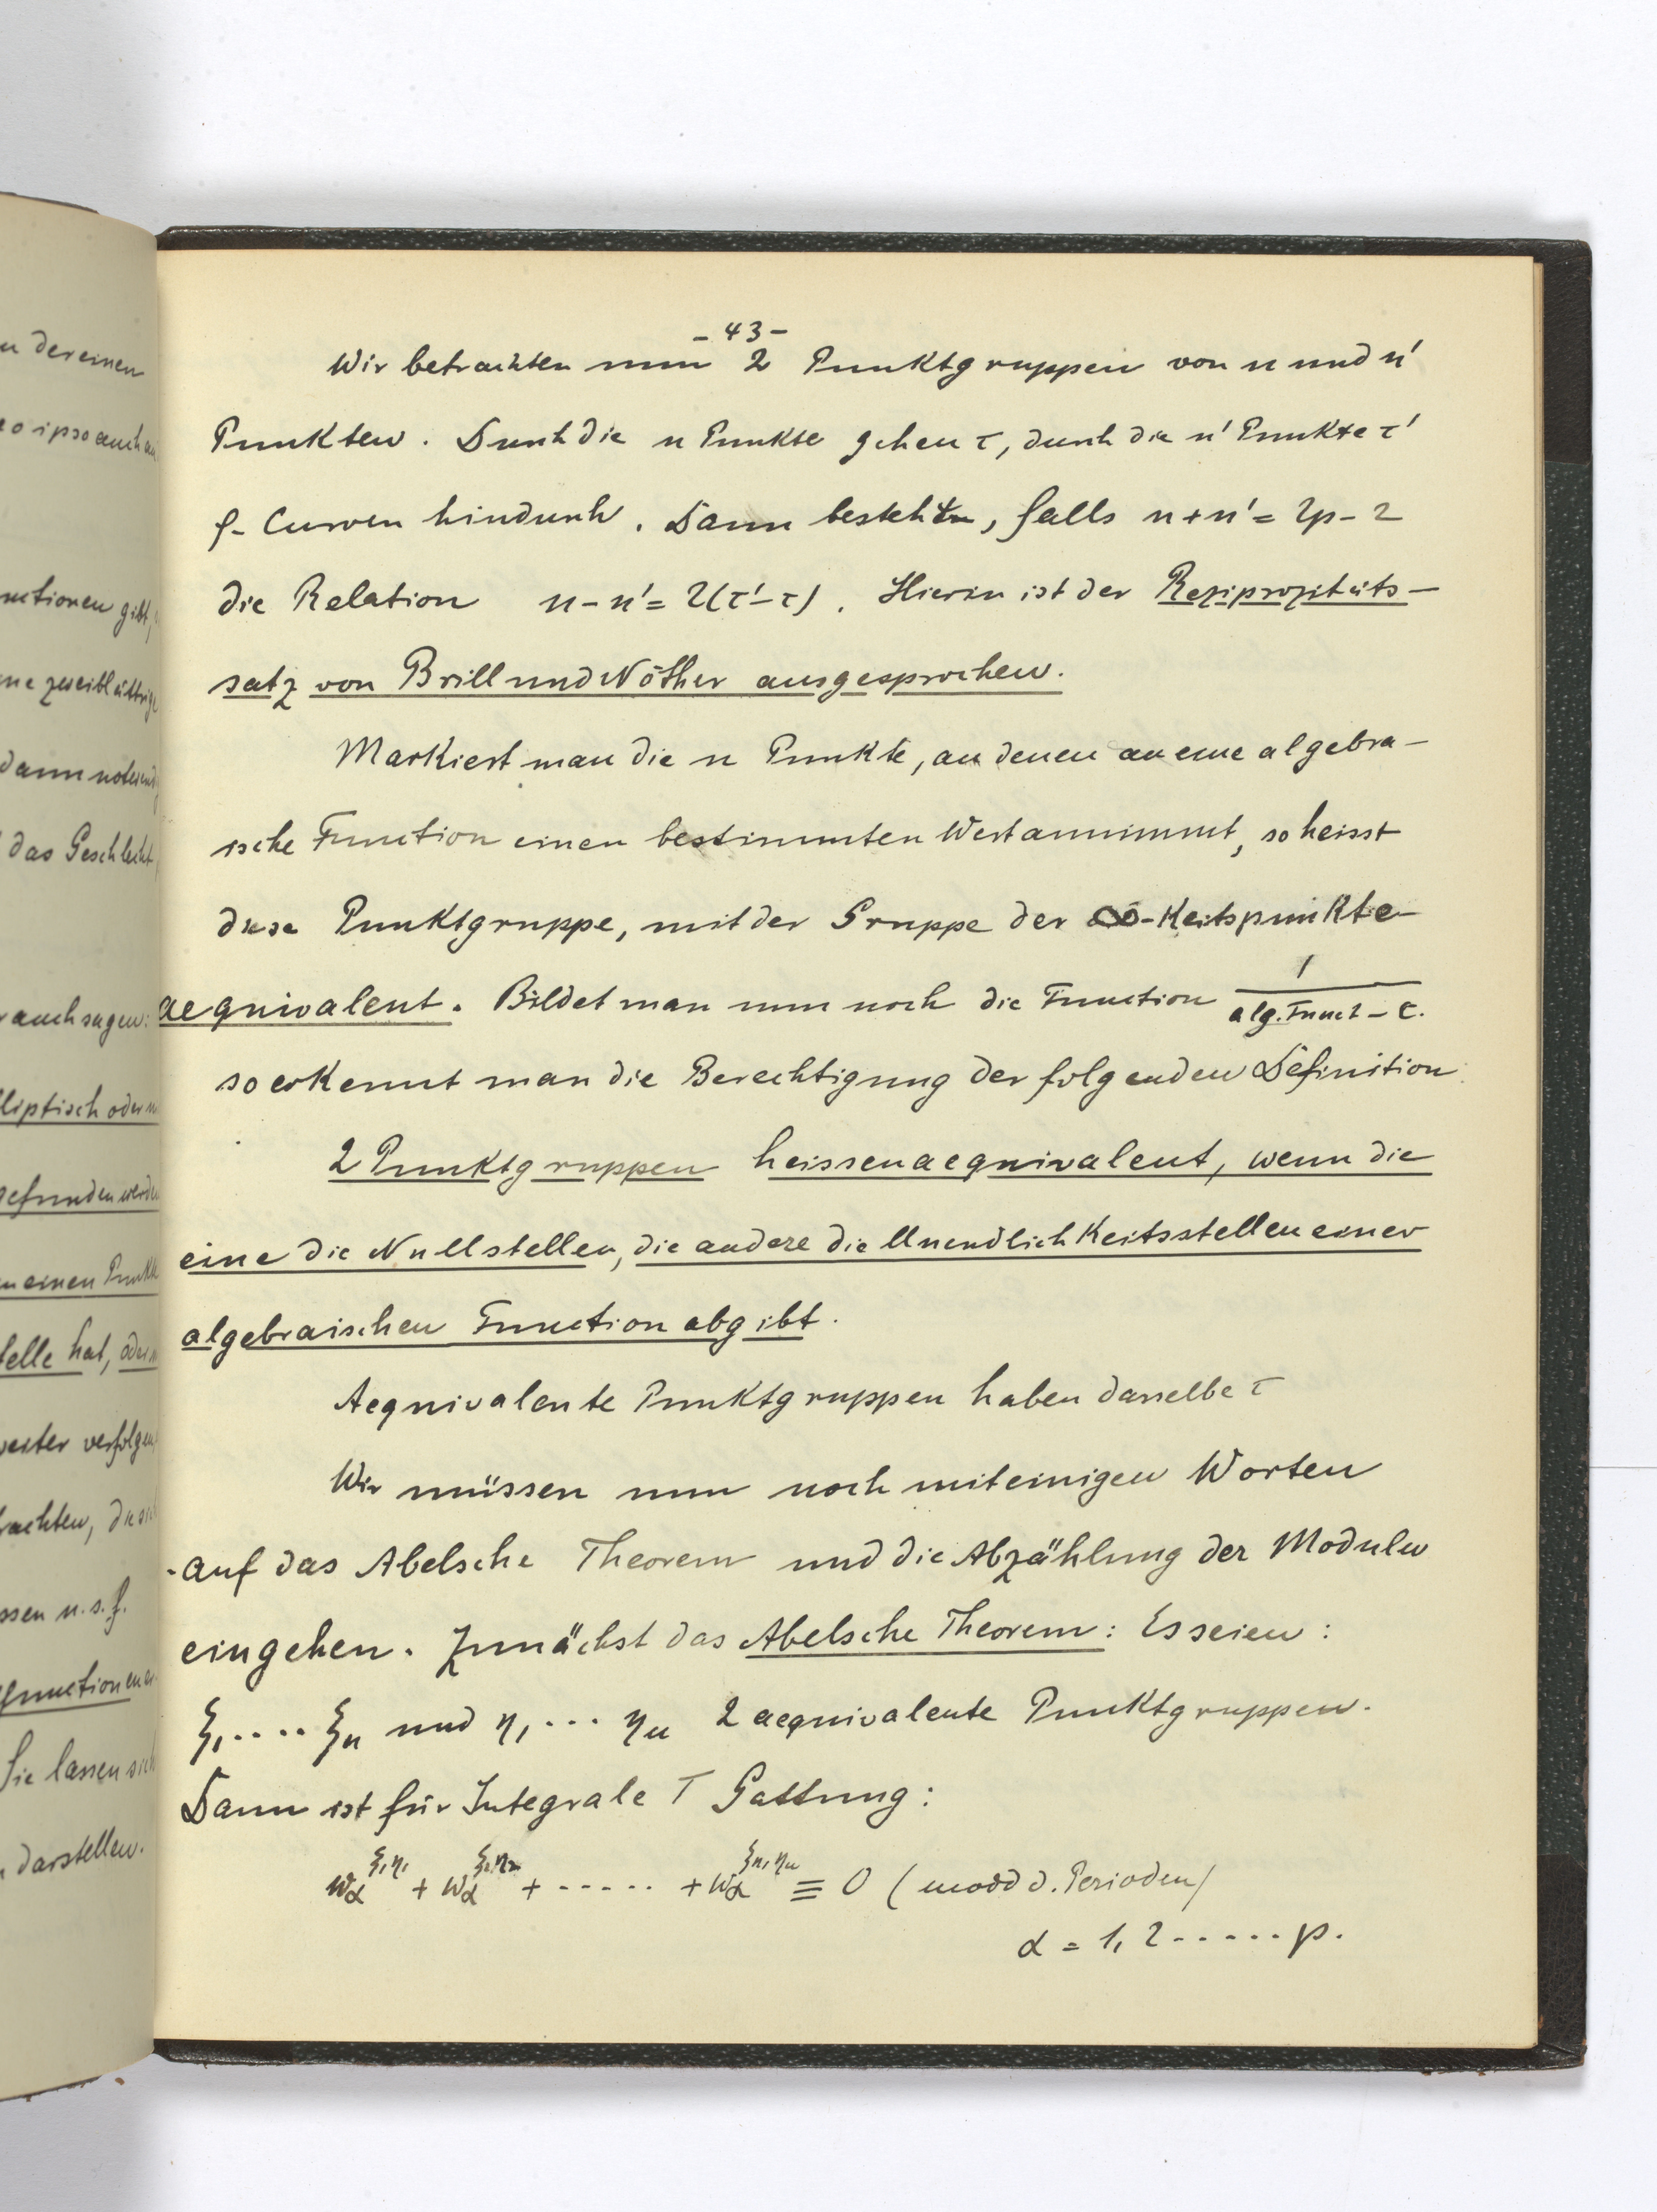 u der einen
eo ipso auch
nctionen gibt,
ne zweiblättrige
dann notwend
das Geschlecht
auch sagen:
lliptisch oder
gefunden werde
einen Punkt
telle hat, oder
weiter verfolgen
rachten, die si
ssen u. s. f.
function en
Sie lassen sich
darstellen.
- 43 -
Wir betrachten nun 2 Punktgruppen von n und n'
Punkten. Durch die n Punkte gehen τ, durch die n' Punkte τ'
φ- Curven hindurch. Dann besteht, falls n + n' = 2p - 2
die Relation n - n' = 2(τ' - τ). Hierin ist der Reziprozitäts-
satz von Brill und Nöther ausgesprochen.
Markiert man die n Punkte, an denen an eine algebra-
ische Function einen bestimmten Wert annimmt, so heisst
diese Punktgruppe, mit der Gruppe der ∞-Keitspunkte
aequivalent. Bildet man nun noch die Function 1/(alg. Funct - c.
so erkennt man die Berechtigung der folgenden Definition.
2 Punktgruppen heissen aequivalent, wenn die
eine die Nullstellen, die andere die Unendlichkeitsstellen einer
algebraischen Function abgibt.
Aequivalente Punktgruppen haben dasselbe τ
Wir müssen nun noch mit einigen Worten
auf das Abelsche Theorem und die Abzählung der Moduln
eingehen. Zunächst das Abelsche Theorem: Es seien:
ξ₁ .... ξₙ und η₁ ... ηₙ 2 aequivalente Punktgruppen.
Dann ist für Integrale I Gattung:
w_α^{ξ₁η₁} + w_α^{ξ₂η₂} + ------ + w_α^{ξₙ,ηₙ} ≡ 0 (modd d. Perioden)
α = 1, 2 ------ p.